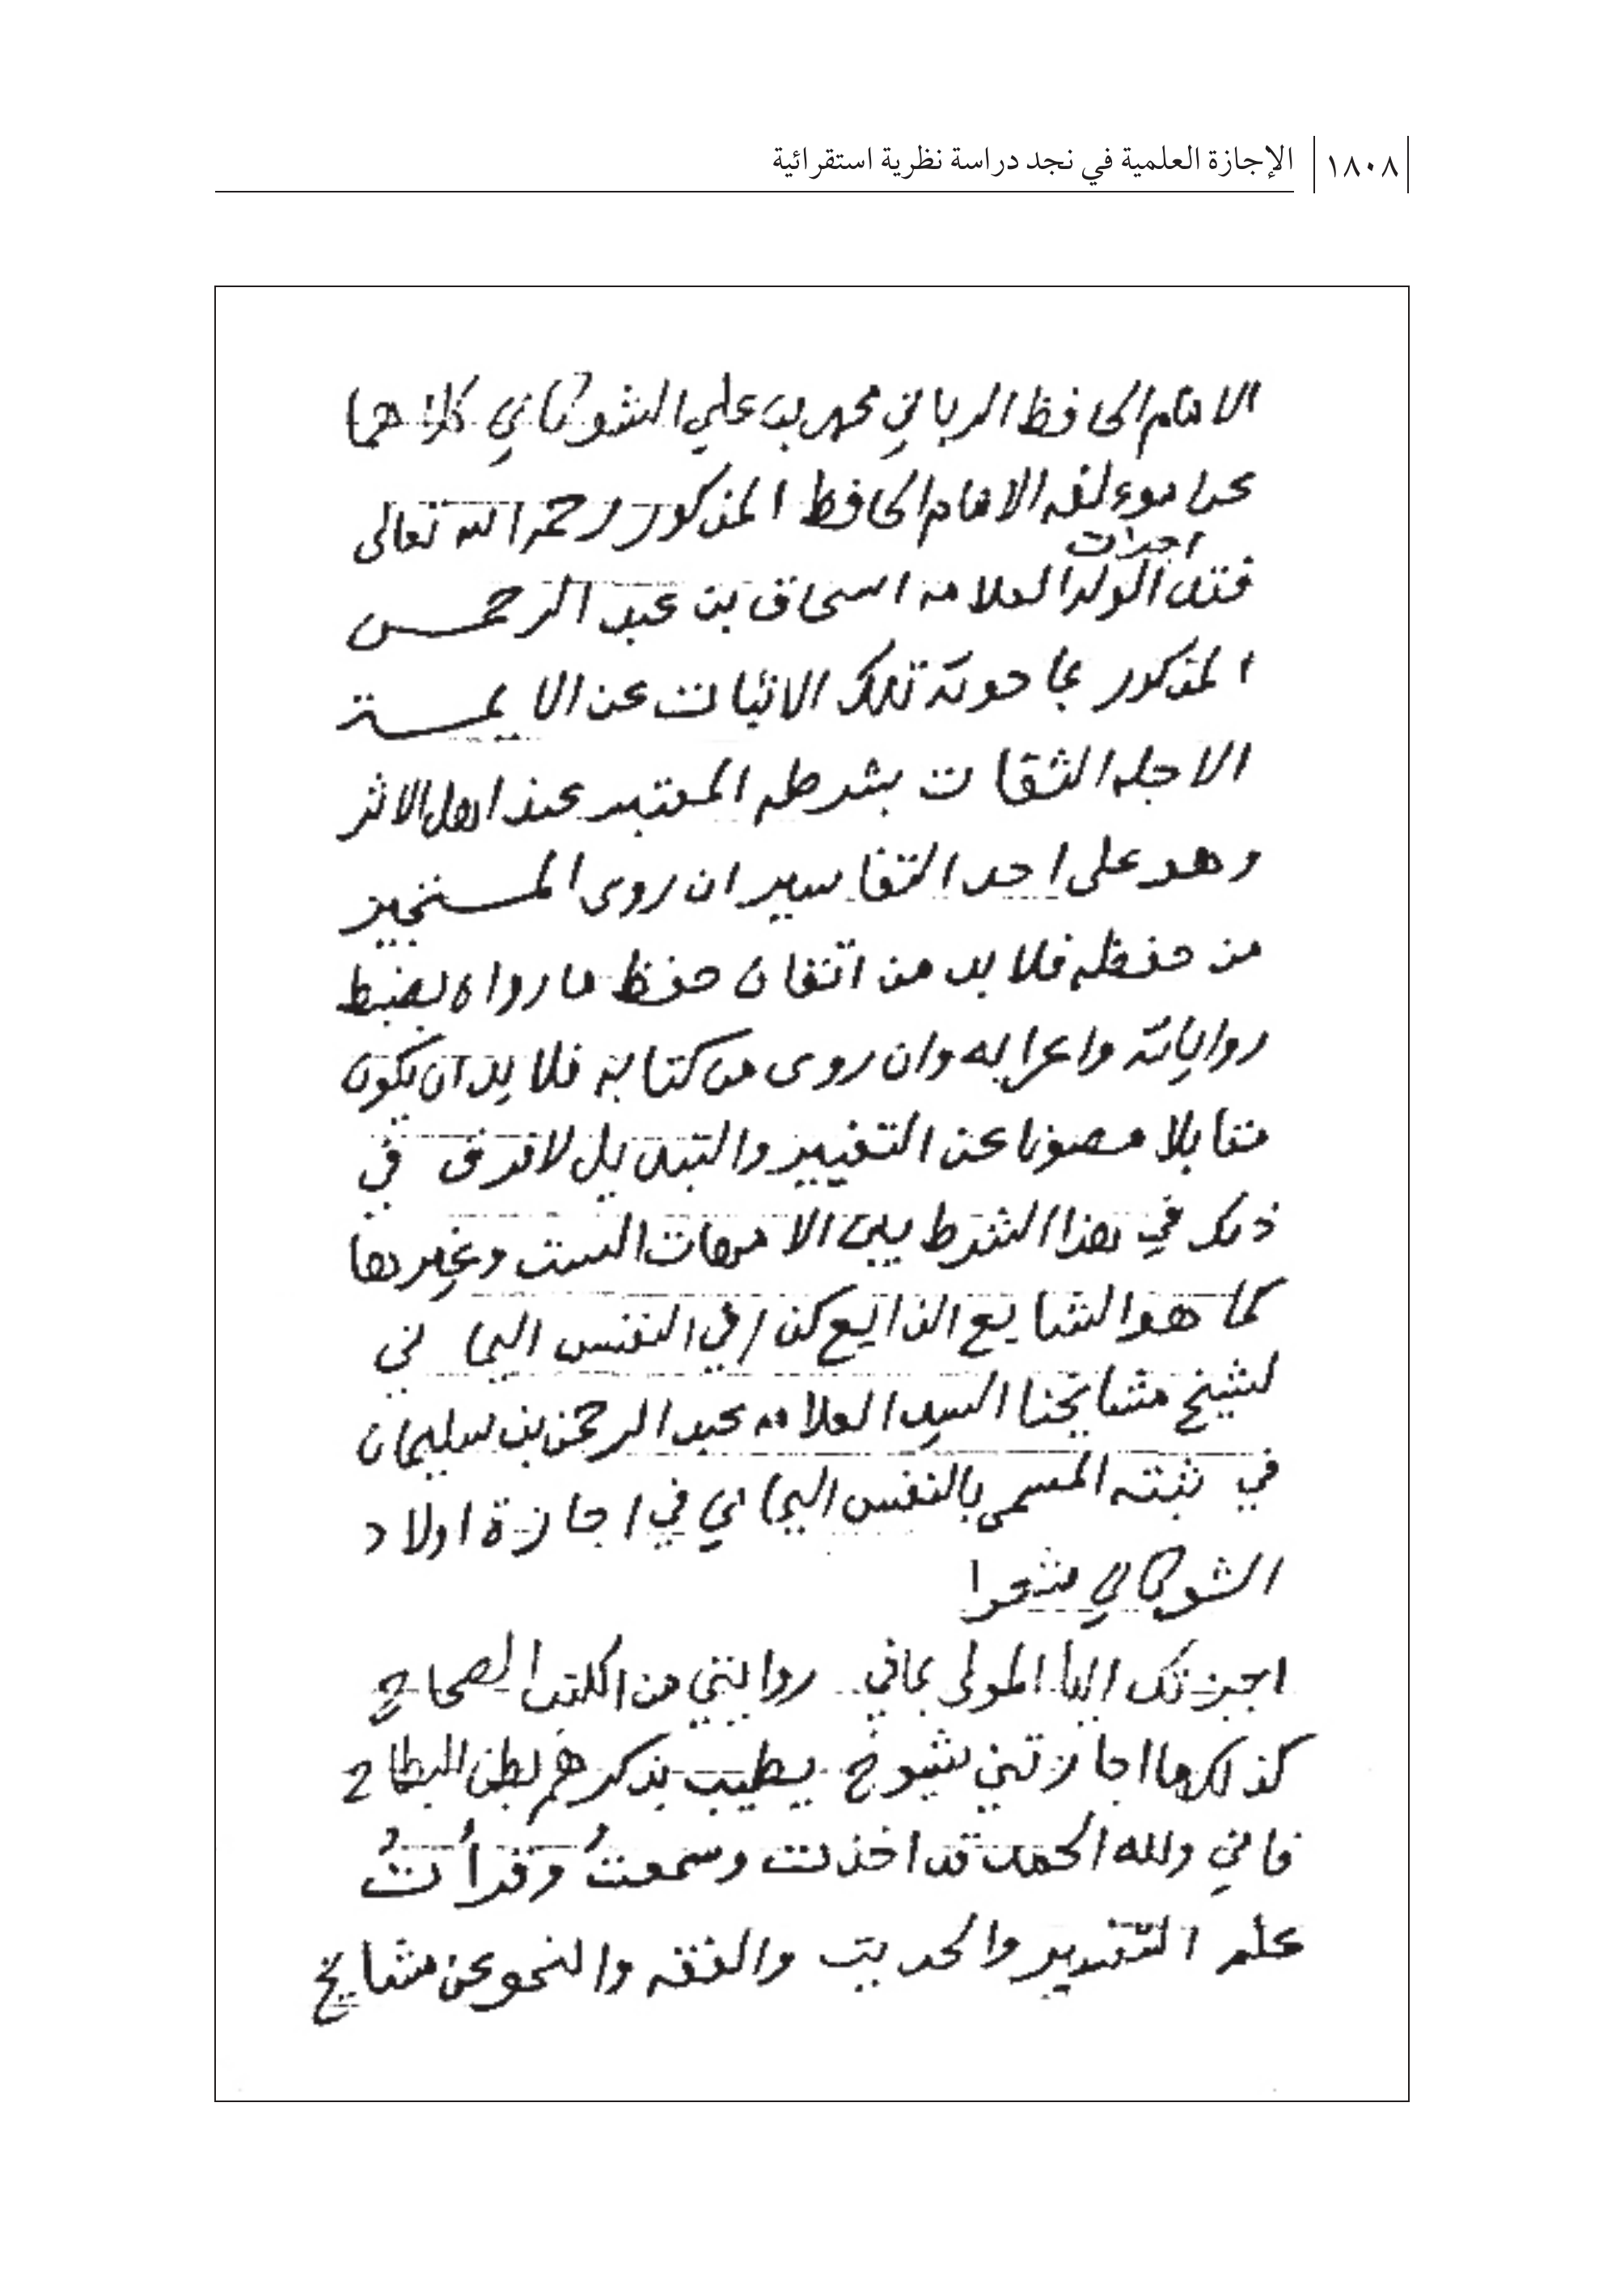 ١٨٠٨ الإجازة العلمية في نجد دراسة نظرية استقرائية
الامام الحافظ الرباني محمد بن علي الشوكاني كلاهما
عن موءلفه الامام الحافظ المذكور رحمه الله تعالى
اجزت
فقد الولد العلامه اسحاق بن عبد الرحمن
المذكور بما حوته تلك الاثبات عن الايمة
الاجله الثقات بشرطه المعتبر عند اهل الاثر
وهو على احد التفاسير ان روى المستجيز
من حفظه فلا بد من اتقان حفظ ما رواه بضبط
رواياته واعرابه وان روى من كتابه فلا بد ان يكون
مقابلا مصونا عن التغيير والتبديل لا فرق في
ذلك في هذا الشرط بين الامهات الست وغيرها
كما هو الشايع الذايع كذا في النفس اليماني
لشيخ مشايخنا السيد العلامه عبد الرحمن بن سليمان
في ثبته المسمى بالنفس اليماني في اجازة اولاد
الشوكاني شعرا
اجزتك ايها المولى بما في روايتي من الكتب الصحاح
كذلك ما اجازتني شيوخ يطيب بذكرهم بطن البطاح
فاني ولله الحمد قد اخذت وسمعتُ وقرأتُ
علم التفسير والحديث والفقه والنحو عن مشايخ